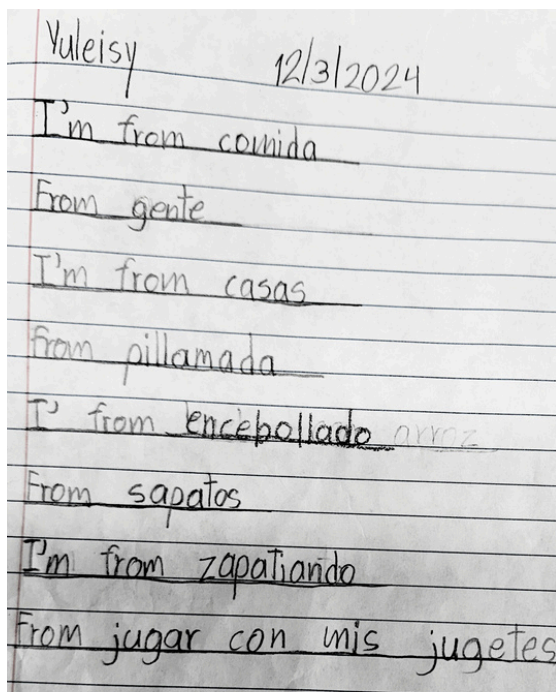 Yuleisy 12/3/2024
I'm from comida
From gente
I'm from casas
from pillamada
I' from encebollado arroz
From sapatos
I'm from zapatiando
From jugar con mis jugetes